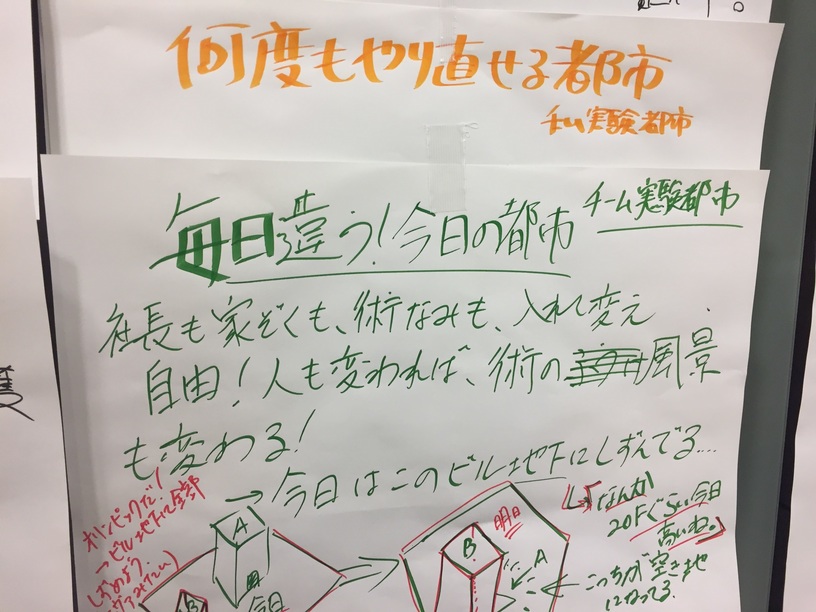 何度もやり直せる都市
チーム実験都市
毎日違う!今日の都市
チーム実験都市
社長も家ぞくも、術なみも、入れ変え
自由!人も変われば、術の風景
も変わる!
→今日はこのビル地下にしずんでる…
オリンピックだ!
→ビル地下に全部
しずめよう
A
B
今日
明日
B
A
「なんか
20Fぐらい今日
高いね。」
こっちが空き地
になってる